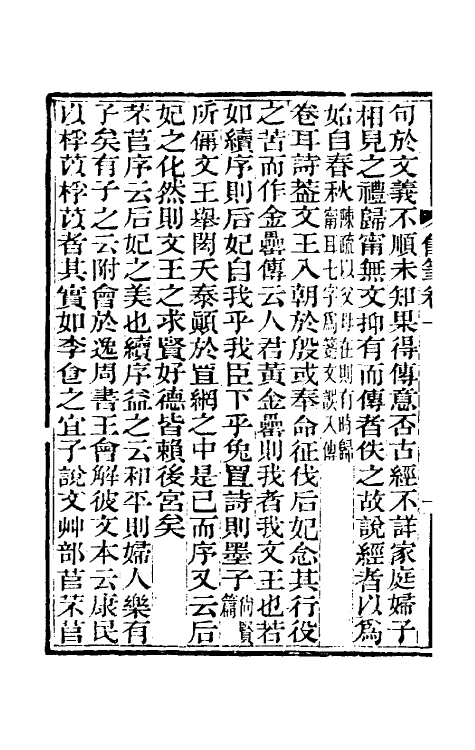 句於文義不順未知果得傳意否古經不詳家庭婦子
相見之禮歸甯無文抑有而傳者佚之故說經者以爲
始自春秋陳疏以父母在則有時歸甯耳七字爲箋文誤入傳
卷耳詩蓋文王入朝於殷或奉命征伐后妃念其行役
之苦而作金罍傳云人君黃金罍則我者我文王也若
如續序則后妃自我乎我臣下乎兔罝詩則墨子尚賢篇
所偁文王舉閎夭泰顚於罝網之中是已而序又云后
妃之化然則文王之求賢好德皆賴後宮矣
芣苢序云后妃之美也續序益之云和平則婦人樂有
子矣有子之云附會於逸周書王會解彼文本云康民
以桴苡桴苡者其實如李食之宜子說文艸部苢芣苢